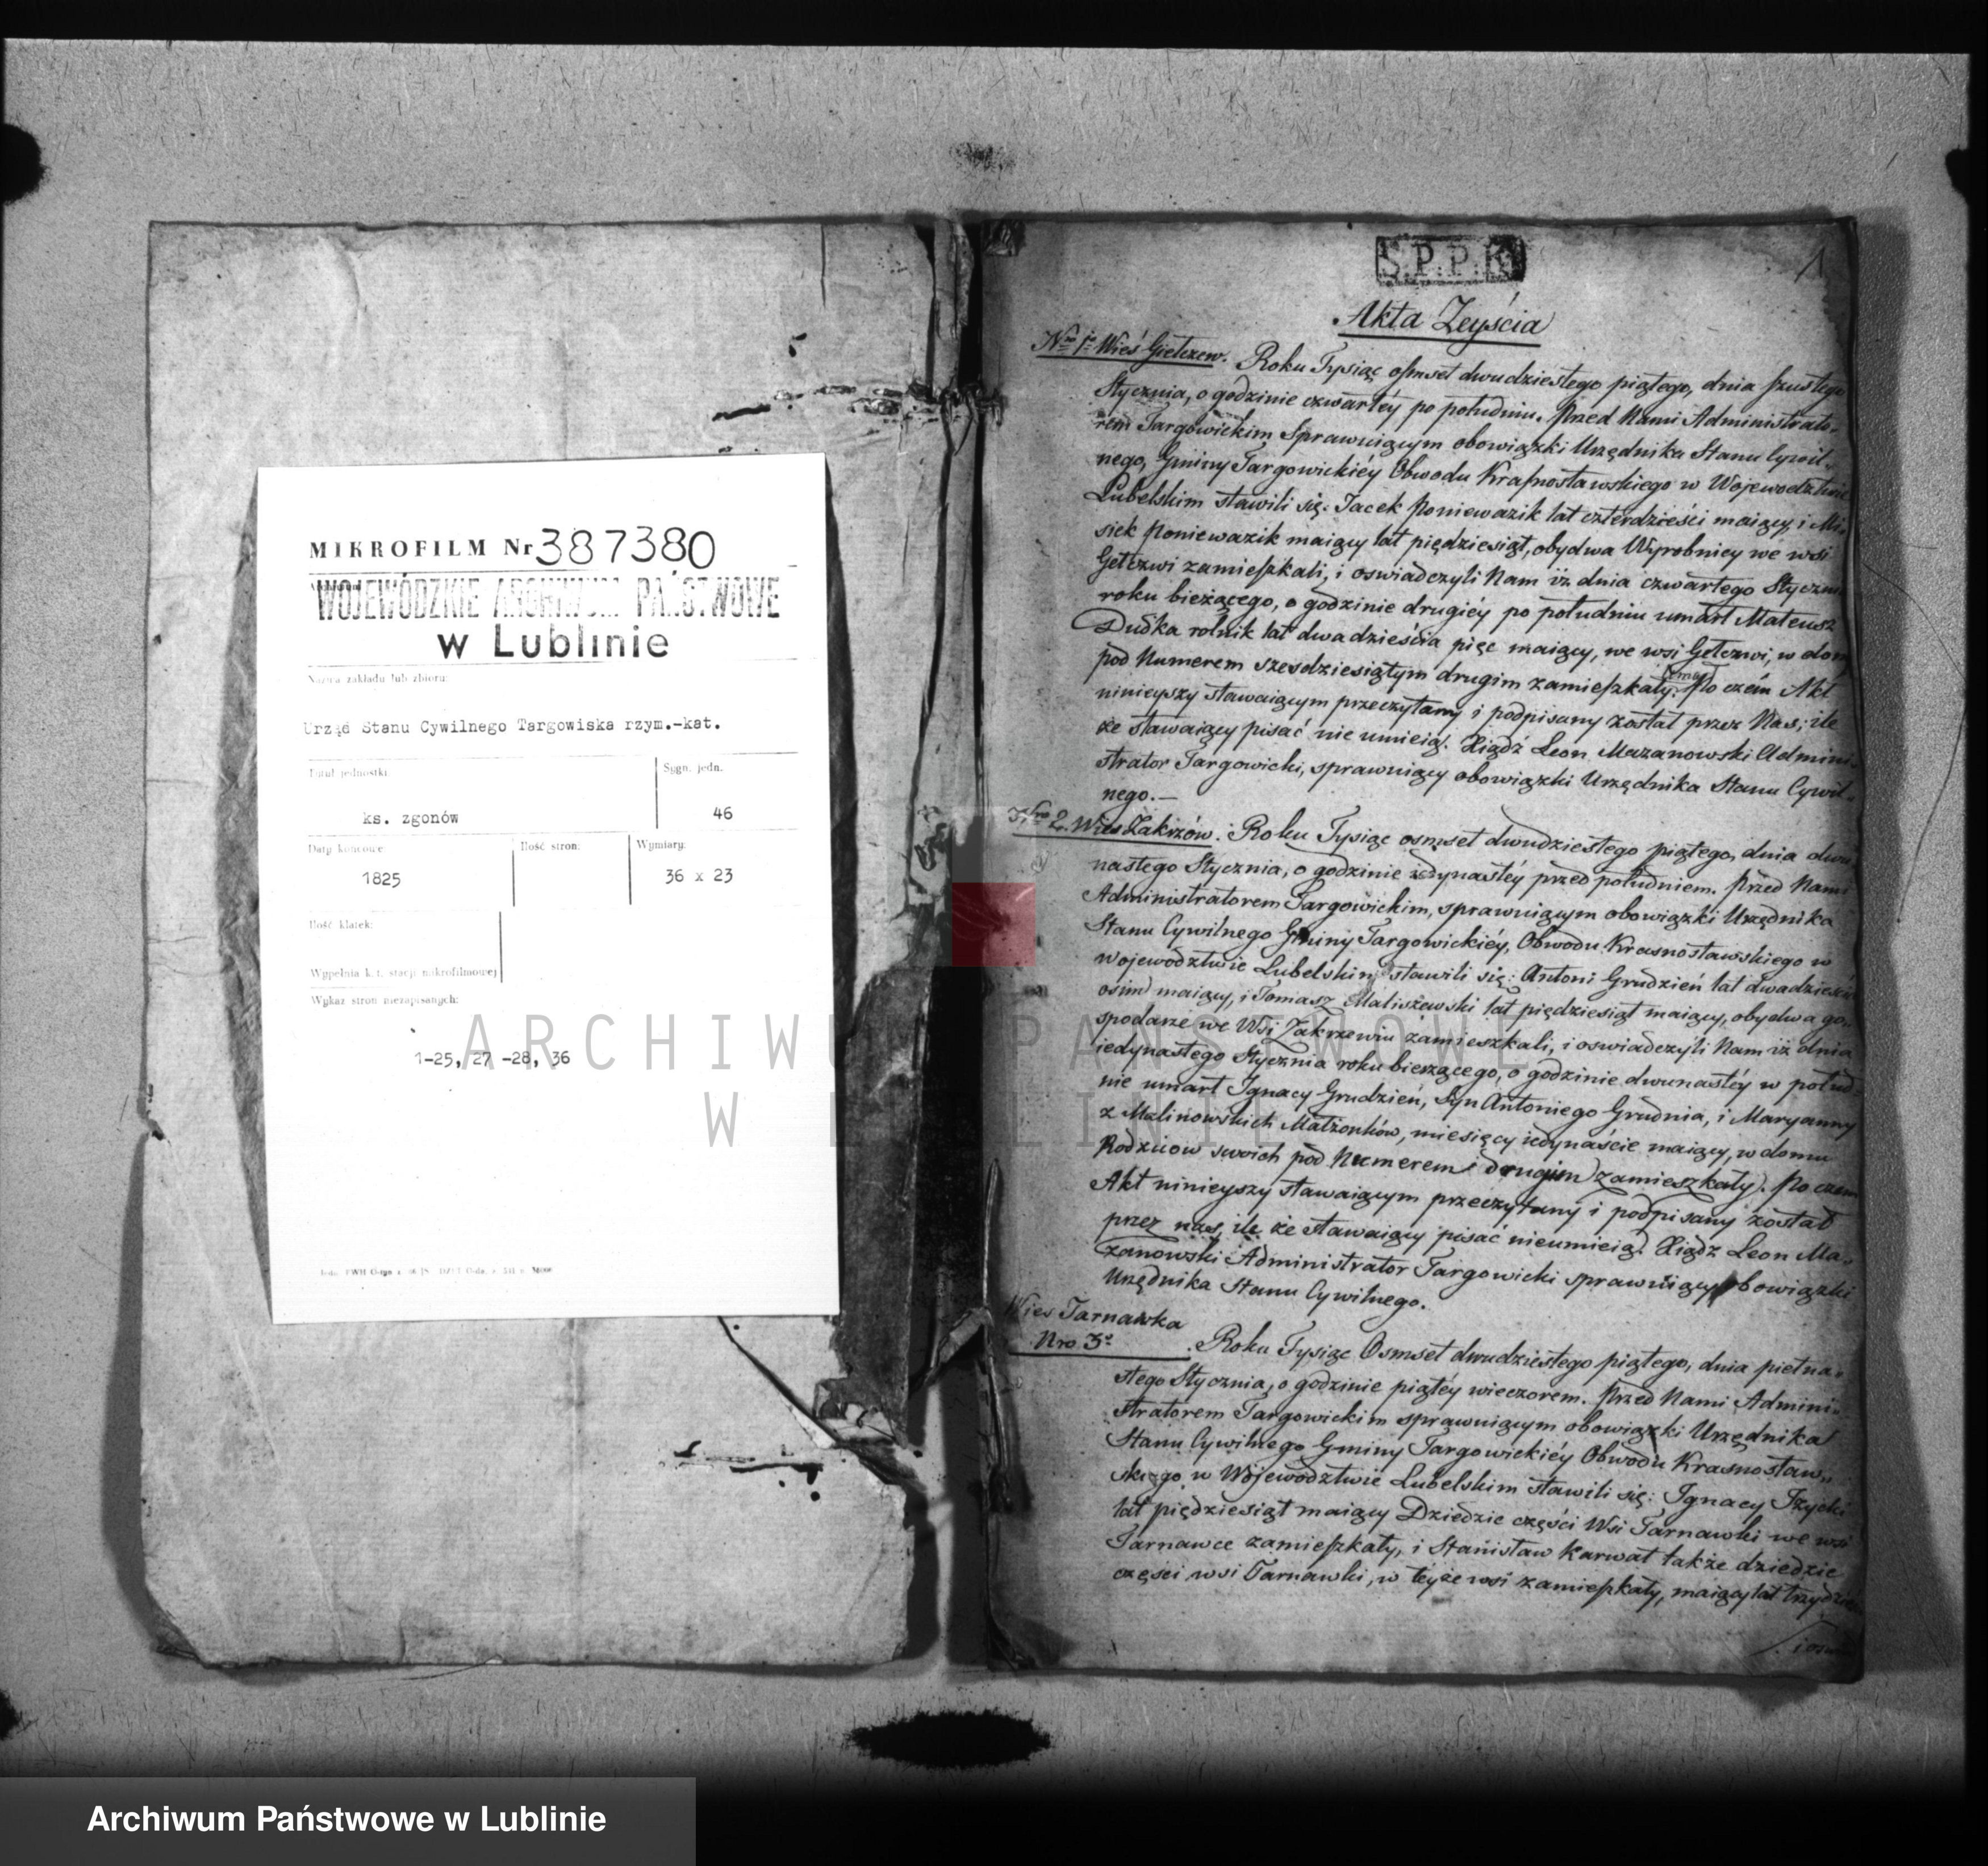 MIKROFILM Nr 387380
WOJEWÓDZKIE ARCHIWUM PAŃSTWOWE
w Lublinie
Nazwa zakładu lub zbioru:
Urząd Stanu Cywilnego Targowiska rzym.-kat.
Tytuł jednostki
Sygn. jedn.
ks. zgonów
46
Daty końcowe:
Ilość stron:
Wymiary:
1825
36 x 23
Ilość klatek:
Wypełnia k.t. stacji mikrofilmowej
Wykaz stron niezapisanych:
1-25, 27 -28, 36
S.P.P.K
1
Akta Zeyścia
Nro 1o Wieś Giełczew. Roku Tysiąc ośmset dwudziestego piątego, dnia szustego
Stycznia, o godzinie czwartéy po południu. Przed Nami Administrato-
rem Targowickim Sprawuiącym obowiązki Urzędnika Stanu Cywil-
nego, Gminy Targowickiéy Obwodu Krasnostawskiego w Wojewodztwie
Lubelskim stawili się: Jacek Poniewazik lat czterdzieści maiący, i Mi-
siek Poniewazik maiący lat piędziesiąt, obydwa Wyrobnicy we wsi
Gełczwi zamieszkali, i oswiadczyli Nam iż dnia czwartego Styczni
roku bieżącego, o godzinie drugiéy po południu umarł Mateusz
Dudka rolnik lat dwadzieścia pięc maiący, we wsi Gełczwi, w dom
pod Numerem szesdziesiątym drugim zamieszkały. Po czém Akt
ninieyszy stawaiącym przeczytany i podpisany został przez Nas, ile
że stawaiący pisać nie umieią. Xiądz Leon Mazanowski Admini-
strator Targowicki, sprawuiący obowiązki Urzędnika Stanu Cywil-
nego.—
Nro 2. Wieś Zakrzów. Roku Tysiąc osmset dwudziestego piątego, dnia dwu-
nastego Stycznia, o godzinie iedynastéy przed południem. Przed Nami
Administratorem Targowickim, sprawuiącym obowiązki Urzędnika
Stanu Cywilnego Gminy Targowickiéy, Obwodu Krasnostawskiego w
Wojewodztwie Lubelskim stawili się: Antoni Grudzień lat dwadzieścia
osim maiący, i Tomasz Maliszewski lat piędziesiąt maiący, obydwa go-
spodarze we Wsi Zakrzewiu zamieszkali, i oswiadczyli Nam iż dnia
iedynastego Stycznia roku bieżącego, o godzinie dwunastéy w połud-
nie umarł Ignacy Grudzień, Syn Antoniego Grudnia, i Maryanny
z Malinowskich Małżonków, miesięcy iedynaście maiący, w domu
Rodziców swoich pod Numerem drugim zamieszkały. Po czem
Akt ninieyszy stawaiącym przeczytany i podpisany został
przez nas, ile że stawaiący pisać nieumieią. Xiądz Leon Ma-
zanowski Administrator Targowicki sprawuiący obowiązki
Urzędnika Stanu Cywilnego.
Wies Tarnawka
Nro 3o
Roku Tysiąc Osmset dwudziestego piątego, dnia pietna-
stego Stycznia, o godzinie piątéy wieczorem. Przed Nami Admini-
stratorem Targowickim sprawuiącym obowiązki Urzędnika
Stanu Cywilnego Gminy Targowickiéy Obwodu Krasnostaw-
skiego w Wojewodztwie Lubelskim stawili się: Ignacy
lat piędziesiąt maiący Dziedzic części Wsi Tarnawki we wsi
Tarnawce zamieszkały, i Stanisław Karwat także dziedzic
części wsi Tarnawki, w téyże wsi zamieszkały, maiący lat
ARCHIWUM PAŃSTWOWE
W LUBLINIE
Archiwum Państwowe w Lublinie